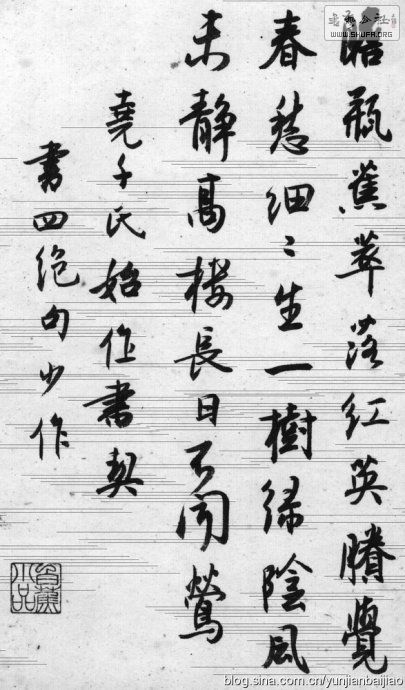 WWW.SHUFA.ORG
瓶蕉萃落紅英賸覺
春愁細〻生一樹綠陰風
未靜高樓長日不聞鶯
堯千氏始作書契
書四絕句少作
blog.sina.com.cn/yunjianbaijiao